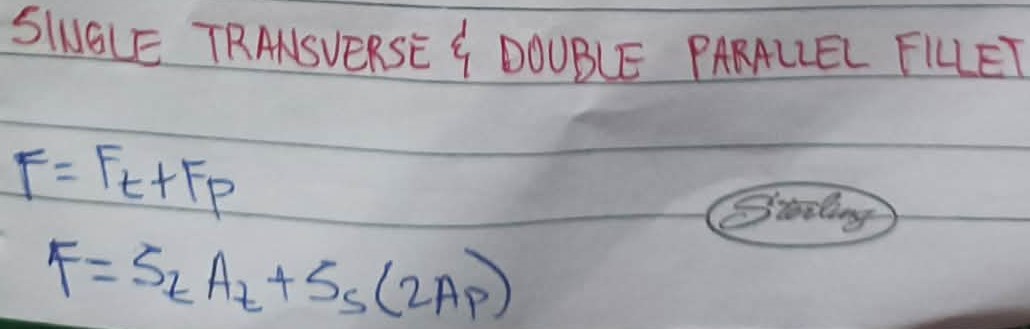 SINGLE TRANSVERSE & DOUBLE PARALLEL FILLET
F = Ft + Fp
Sterling
F = St At + Ss (2Ap)